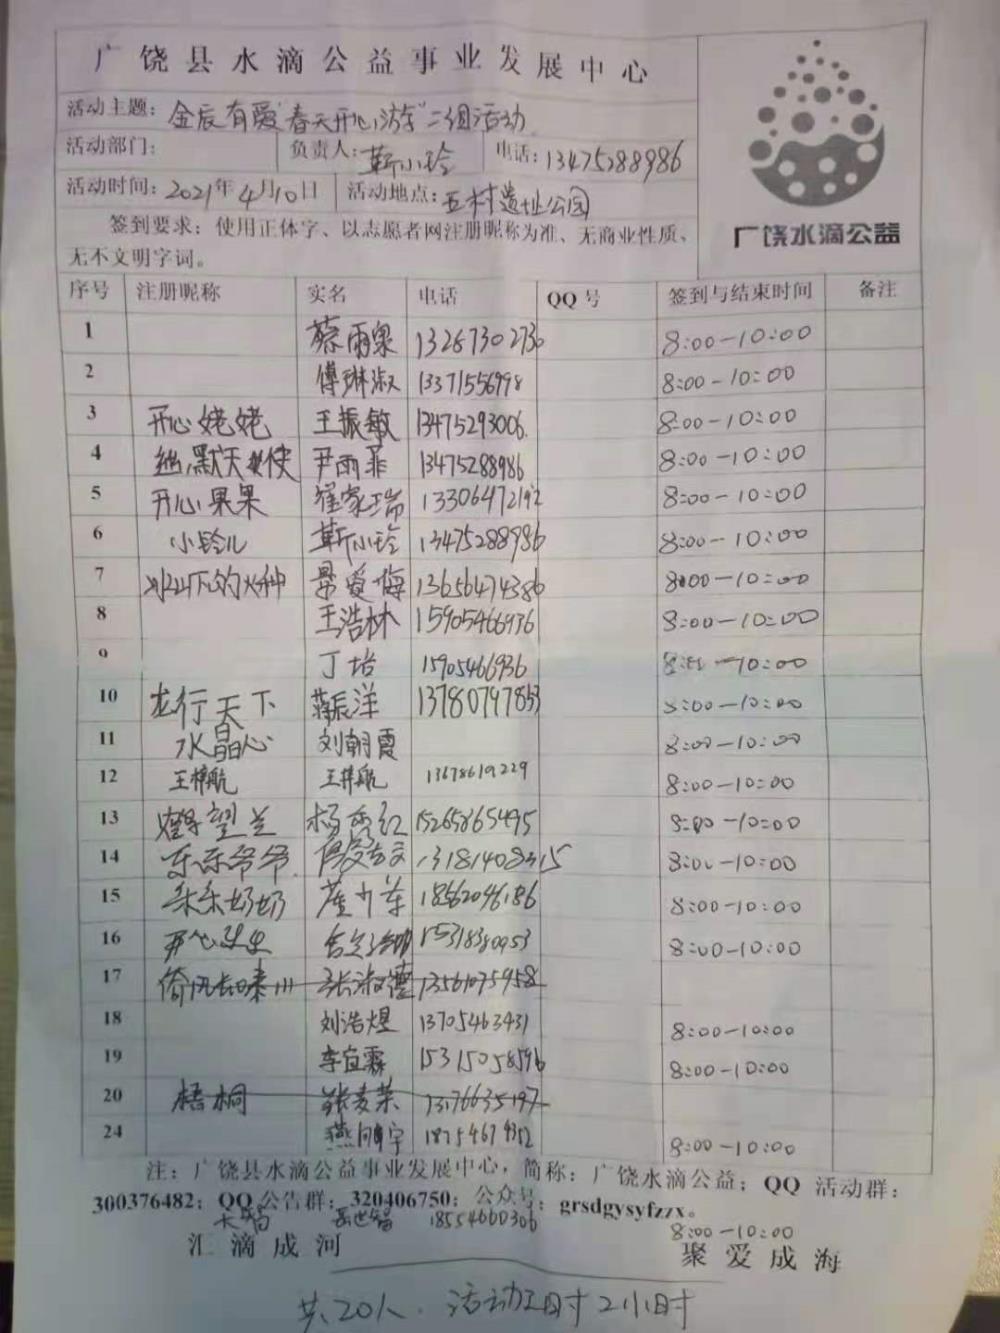 广饶县水滴公益事业发展中心
活动主题：金辰有爱"春天开心游"二组活动
活动部门： 负责人：靳小玲 电话：13475288986
活动时间：2021年4月10日 活动地点：五村遗址公园
广饶水滴公益
签到要求：使用正体字、以志愿者网注册昵称为准、无商业性质、
无不文明字词。
序号 注册昵称 实名 电话 QQ号 签到与结束时间 备注
1 蔡雨泉 13287302730 8:00-10:00
2 傅琳淑 13371556998 8:00-10:00
3 开心姥姥 王振敏 13475293006 8:00-10:00
4 幽默天使 尹雨菲 13475288986 8:00-10:00
5 开心果果 崔家瑞 13306472192 8:00-10:00
6 小铃儿 靳小玲 13475288986 8:00-10:00
7 冰山下的火种 景爱梅 13656474386 8:00-10:00
8 王浩林 15905466936 8:00-10:00
9 丁培 15905466936 8:00-10:00
10 龙行天下 蒋辰洋 13780797853 8:00-10:00
11 水晶心 刘朝霞 8:00-10:00
12 王梓航 王梓航 13678619229 8:00-10:00
13 鹤望兰 杨秀红 15265865495 8:00-10:00
14 乐乐爷爷 13181408315 8:00-10:00
15 朵朵奶奶 崔少华 18562046186 8:00-10:00
16 开心 8:00-10:00
17 张淑德 13561075958
18 刘浩煜 13705463431 8:00-10:00
19 李宜霖 15315058596 8:00-10:00
20 梧桐 张麦荣 13176635197
24 燕 宇 18754674352 8:00-10:00
注：广饶县水滴公益事业发展中心，简称：广饶水滴公益；QQ 活动群：
300376482；QQ公告群：320406750；公众号：grsdgysyfzzx。
大智 岳世智 18554660306 8:00-10:00
汇滴成河 聚爱成海
共20人．活动工时2小时